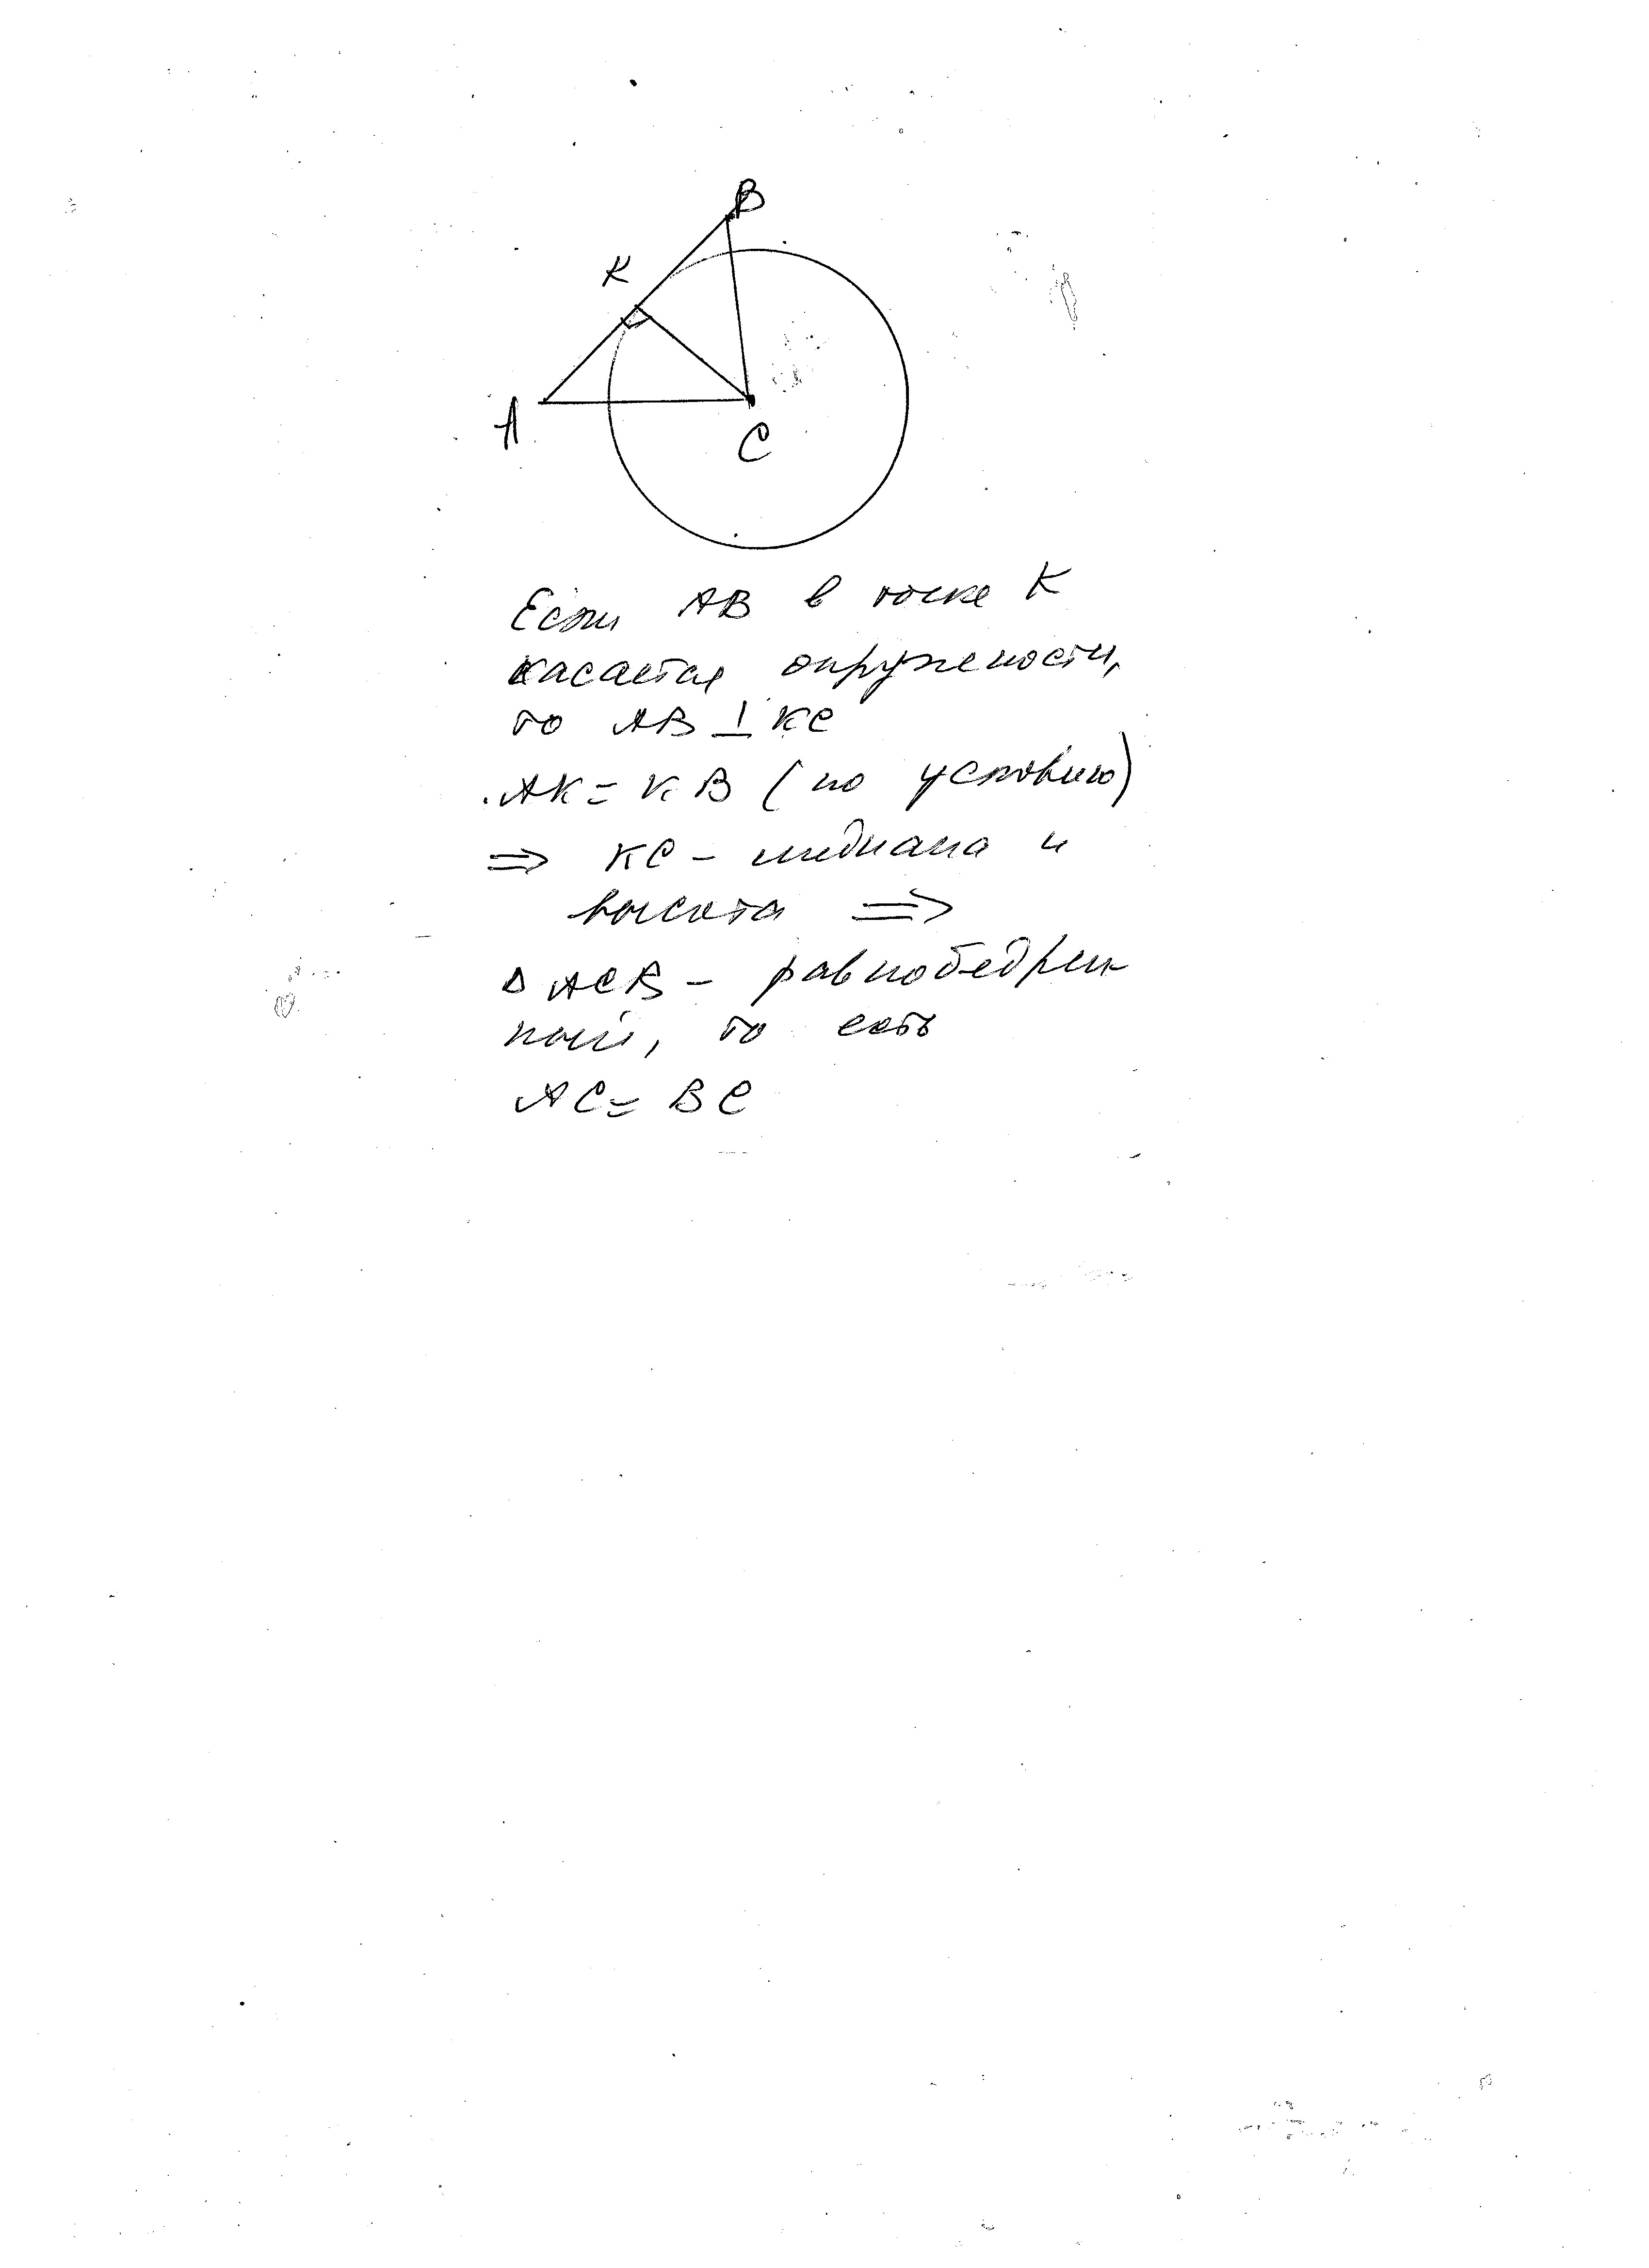 B
K
A
C
Если AB в точке K
касается окружности,
то AB ⊥ KC
AK = KB (по условию)
⇒ KC – медиана и
высота ⇒
Δ ACB – равнобедрен-
ный, то есть
AC = BC